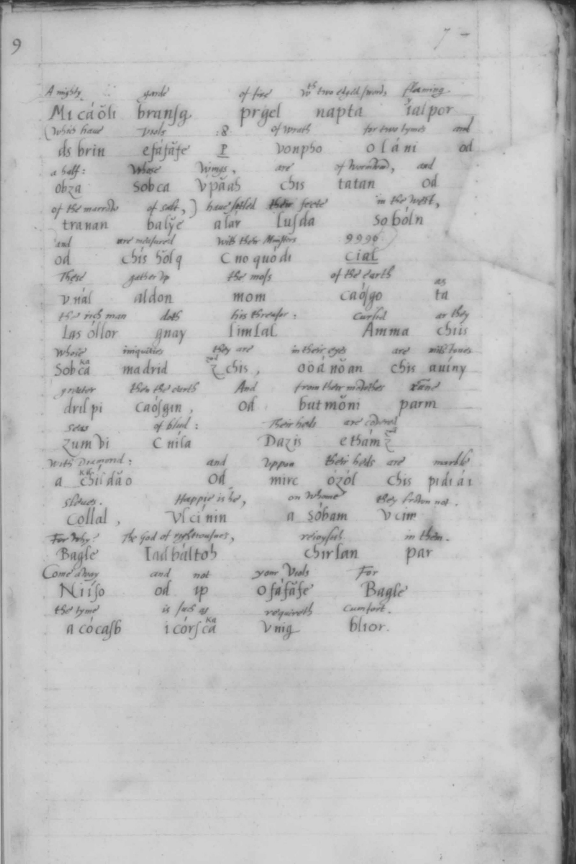 9 7
A mighty garde of fire wth two edged swords flaming.
Micáŏli bransg prgel napta íalpor
(Which have Viols :8 of wrath for two tymes and
ds brin efáfáfe P vonpho o l á ni od
a half: Whose wings, are of wormwood, and
obza Sobca vpáah chis tatan od
of the marrow of salt,) have setled their feete in the west,
tranan balýe alár lusda soboln
and are measured with their Ministers 9996
od chis hôlq C no quódi cial
These gather vp the moss of the earth as
vnál aldon mom caósgo ta
the rich man doth his threasor: Cursed ar they
las óllor gnay limlal Amma chiis
Whose iniquities they are in their eyes are milstones
Sobca madrid z chis, ooánŏan chis auíny
greater then the earth And from their mowthes runne
drilpi caósgin, od butmŏni parm
seas of blud: Their heds are covered
zumvi Cníla Dazis ethámz
with Diamond: and vppon their heds are marble
a childáo od mirc ózól chis pidiái
sleves. Happie is he, on whome they frown not.
Collal, Vlcínin a sóbam vcim
For why The God of righteousnes, reioyseth in them.
Bagle Iadbáltoh chirlan par
Come away and not your Viols For
Niíso od ip ofáfáfe Bagle
the tyme is such as requireth cumfort.
acócasb icórsca vnig blior.